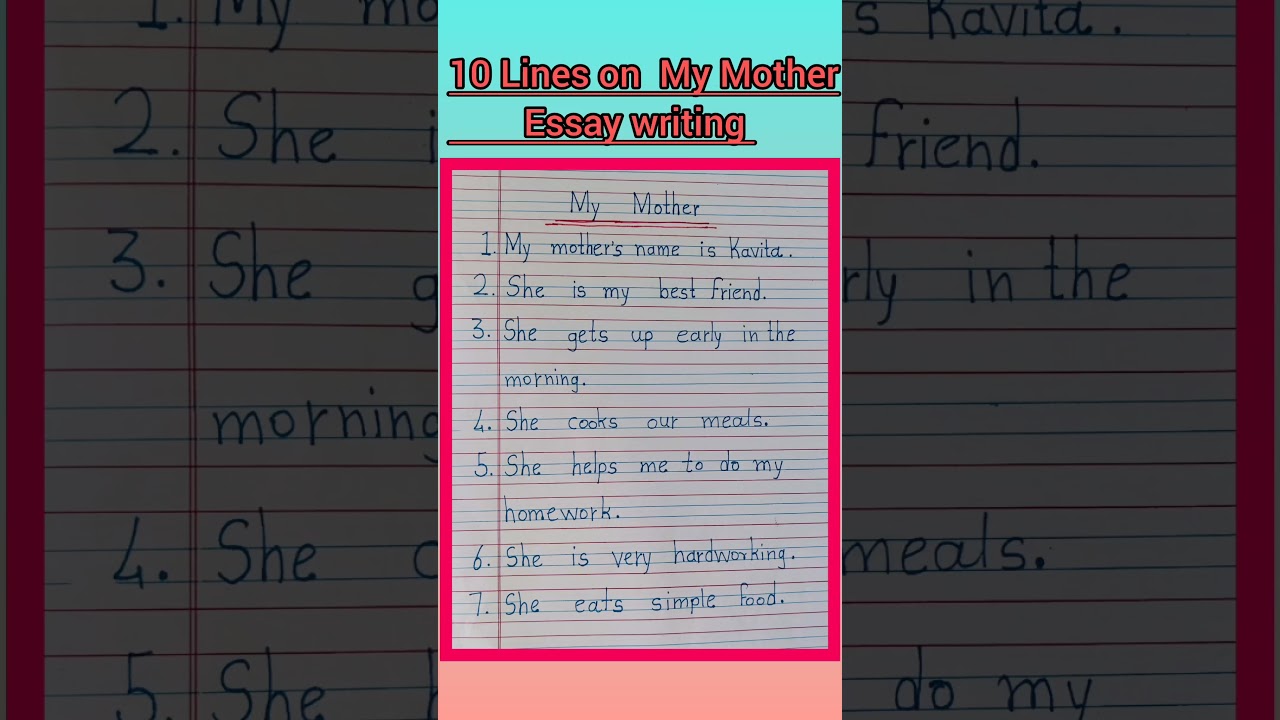 10 Lines on My Mother
Essay writing
My Mother
1. My mother's name is Kavita.
2. She is my best friend.
3. She gets up early in the
morning.
4. She cooks our meals.
5. She helps me to do my
homework.
6. She is very hardworking.
7. She eats simple food.